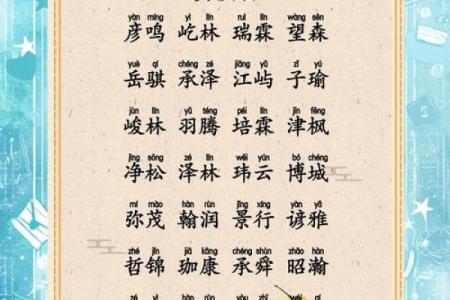 yàn míng yì lín ruì lín wàng sēn
彦鸣 屹林 瑞霖 望森
yuè qí chéng zé jiāng yǔ zǐ yú
岳骐 承泽 江屿 子瑜
jùn lín yǔ téng péi lín jīn fēng
峻林 羽腾 培霖 津枫
jìng sōng zé lín wěi yún bó chéng
净松 泽林 玮云 博城
mí mào hàn rùn jǐng xíng yàn yǎ
弥茂 翰润 景行 谚雅
zhé jǐn jiā kāng chéng shùn zhāo hàn
哲锦 珈康 承舜 昭瀚